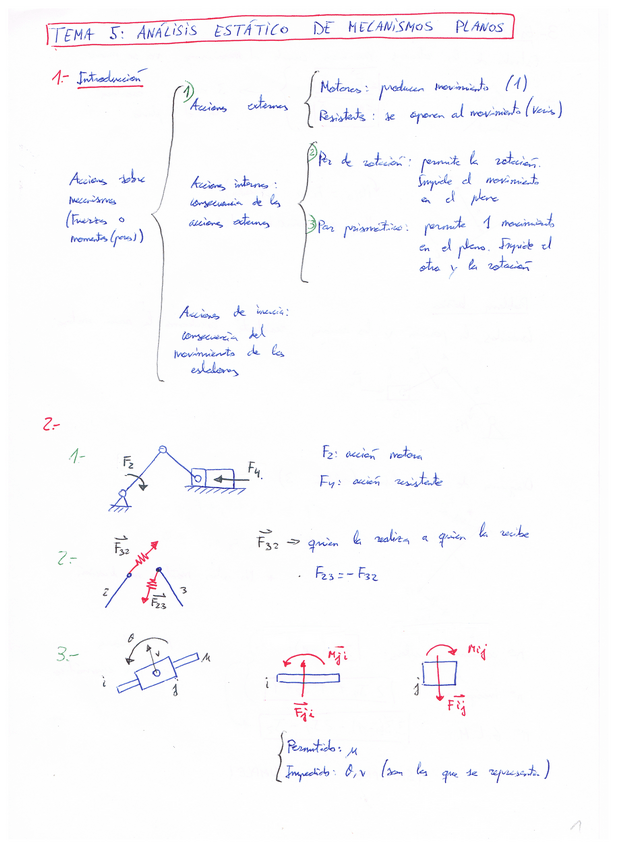 TEMA 5: ANÁLISIS ESTÁTICO DE MECANISMOS PLANOS
1.- Introducción
1) Acciones externas
Motores: producen movimiento (1)
Resistentes: se oponen al movimiento (varias)
Acciones sobre
mecanismos
(Fuerzas o
momentos (pares))
Acciones internas:
consecuencia de las
acciones externas
2) Par de rotación: permite la rotación.
Impide el movimiento
en el plano
3) Par prismático: permite 1 movimiento
en el plano. Impide el
otro y la rotación
Acciones de inercia:
consecuencia del
movimiento de los
eslabones
2.-
1-
F2
F4.
F2: acción motora
F4: acción resistente
2.-
F32
2
F23
3
F32 ⇒ quien la realiza a quien la recibe
. F23 = - F32
3.-
θ
v
μ
i
j
i
Mji
Fji
j
Mij
Fij
Permitido: μ
Impedido: θ, v (son las que se representan)
1